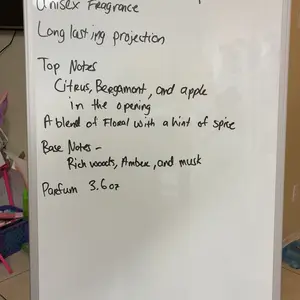 Unisex Fragrance
Long lasting projection
Top Notes
Citrus, Bergamont, and apple
in the opening
A blend of Floral with a hint of spice
Base Notes -
Rich woods, Amber, and musk
Parfum 3.6oz